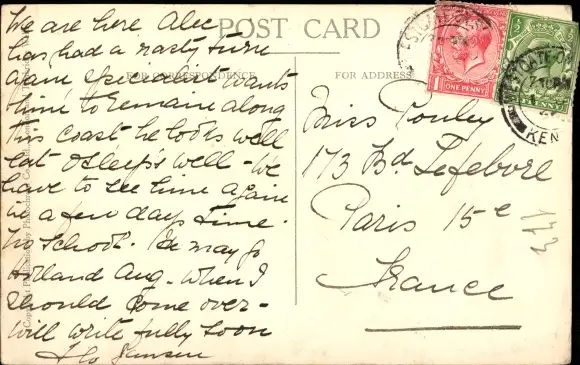 POST CARD
FOR CORRESPONDENCE
FOR ADDRESS
We are here Alec
has had a nasty turn
again specialist wants
him to remain along
this coast he looks well
eat & sleeps well - We
have to see him again
in a few days time.
No school. He may go
Holland Aug. when I
should come over -
will write fully soon
Jensen
Miss Pouley
173 Bd Lefebore
Paris 15e
France
ONE PENNY
KEN